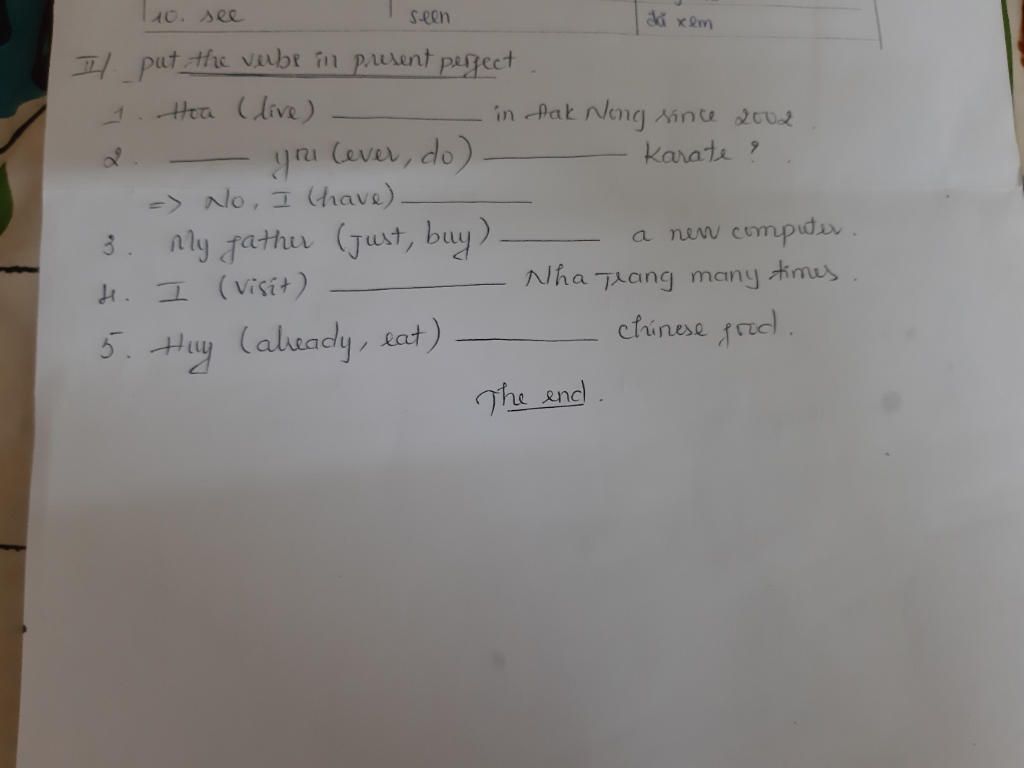 10. see seen đã xem
II/. put the verbs in present perfect.
1. Hoa (live) ________ in Đak Nông since 2002.
2. ____ you (ever, do) ________ Karate?
=> No, I (have) ________
3. My father (just, buy) ________ a new computer.
4. I (visit) ________ Nha Trang many times.
5. Huy (already, eat) ________ chinese food.
The end.